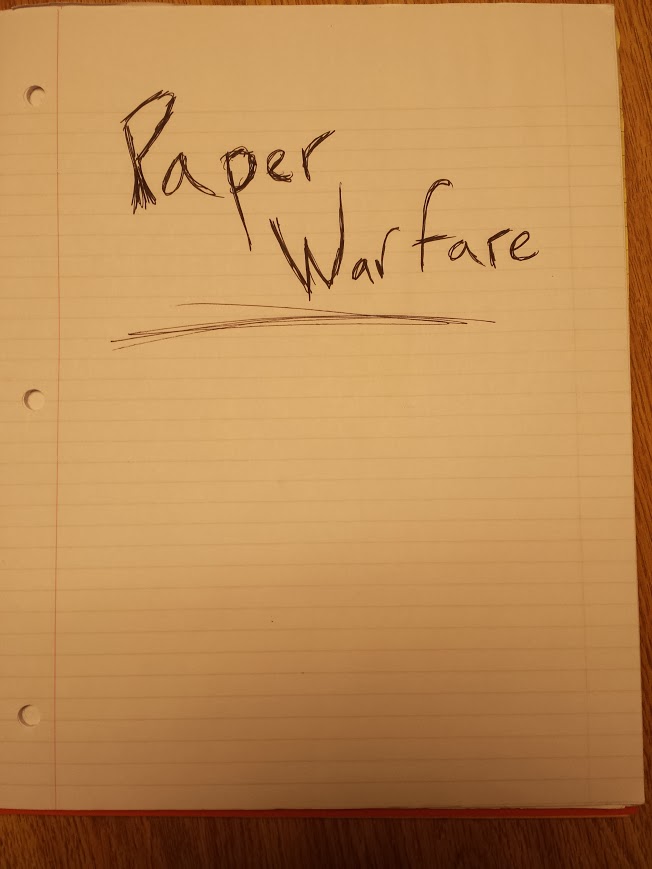 Paper
Warfare